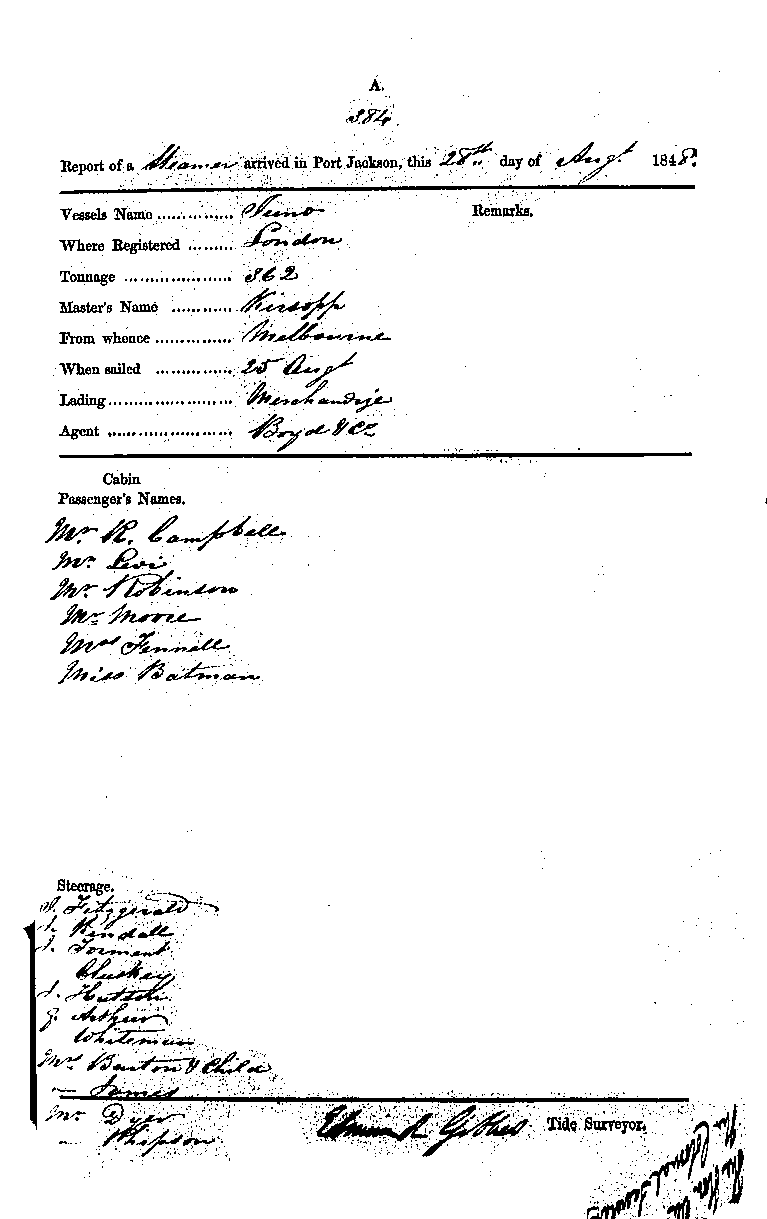 A.
384.
Report of a Steamer arrived in Port Jackson, this 28th day of Augt 1848.
Vessels Name .............. Juno Remarks.
Where Registered ......... London
Tonnage .................... 362
Master's Name ........... Kirsopp
From whence .............. Melbourne
When sailed .............. 25 Augt
Lading....................... Merchandize
Agent ....................... Boyd & Co
Cabin
Passenger's Names.
Mr. R. Campbell
Mr. Levi
Mr. Robinson
Mr Moore
Mrs Fennell
Miss Batman
Steerage.
Fitzgerald
J. Kendall
J. Torment
Cluskey
J.
J. Arthur
Whiteman
Mrs Burton & Child
— James
Mr. Dyer
— Phipson
Gibbes Tide Surveyor.
The Hon. the